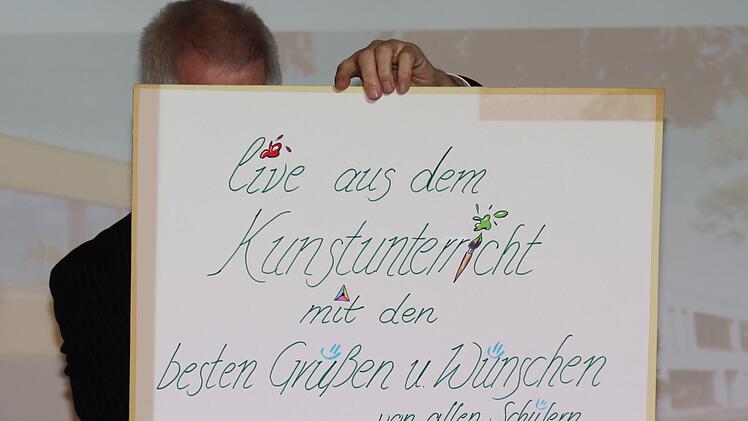 live aus dem
Kunstunterricht
mit den
besten Grüßen u. Wünschen
von allen Schülern